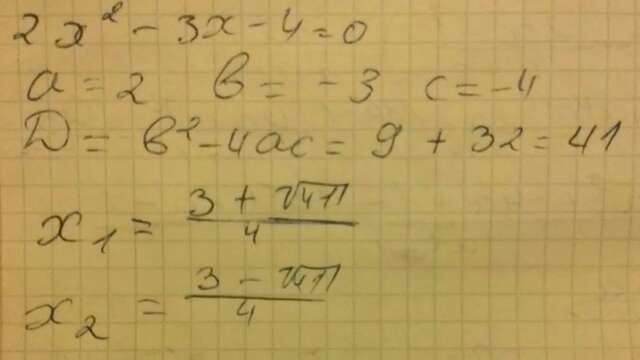 2x² - 3x - 4 = 0
a = 2 b = -3 c = -4
D = b² - 4ac = 9 + 32 = 41
x₁ = (3 + √41)/4
x₂ = (3 - √41)/4